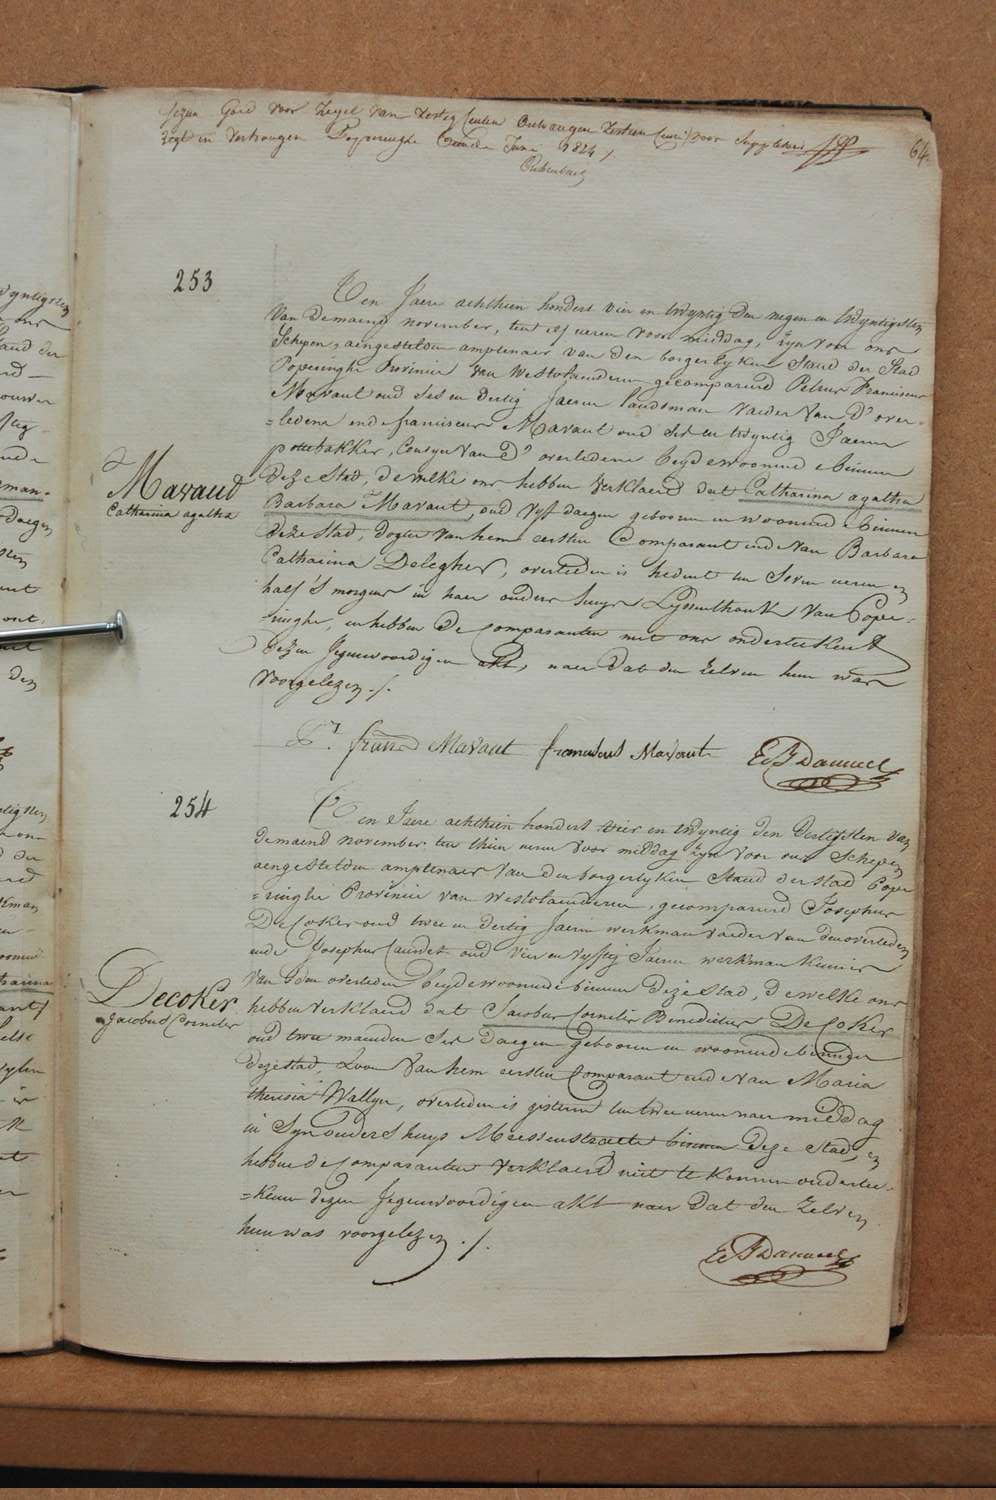 Goed voor zegel van dertig Centen Ontvangen dertien voor
Poperinghe Juni 1824
64
253
Ten Jaere achthien hondert vier en twyntig den negen en twyntigsten
van de maend november, ten elf ueren voor middag, zyn voor ons
Schepen, aengestelden amptenaer van den borgerlyken Staed der Stad
Poperinghe Provincie van Westvlaenderen gecompareerd Petrus Franciscus
Mavaut oud ses en dertig Jaeren landsman vaeder van d'over-
=ledena ende franciscus Mavaut oud en twyntig Jaeren
pottebakker, Cousyn van d'overledene beyde woonende binnen
deze Stad, de welke ons hebben verklaerd dat Catharina agatha
Barbara Mavaut, oud vyf daegen geboren en woonende binnen
deze stad, dogter van hem eersten Comparant ende van Barbara
Catharina Delegher, overleden is hedent ten seven ueren en
half 's morgens in haer ouders huys Lyssenthoek van Pope-
=ringhe, en hebben de Comparanten met ons onderteekent
dezen Jegenwoordigen akt, naer dat den zelven hun was
voorgelezen ./.
Mavaud
Catharina agatha
Pr. frans Mavaut franciscus Mavaut
254
Ten Jaere achthien hondert vier en twyntig den dertigsten van
de maend november ten thien ueren voor middag zyn voor ons Schepen
aengestelden amptenaer van den borgerlyken Staed der stad Pope
=ringhe Provincie van Westvlaenderen, gecompareerd Josephus
De Coker oud twee en dertig Jaeren werkman vaeder van den overleden
ende Josephus Cauwet oud vier en vyftig Jaeren werkman
van den overleden beyde woonende binnen deze Stad, de welke ons
hebben verklaerd dat Jacobus Cornelis Benedictus De Coker
oud twee maenden daegen geboren en woonende binnen
deze stad, zoon van hem eersten Comparant ende van Maria
theresia Wallyn, overleden is gisteren ten twee ueren naer middag
in syn ouders huys Meessenstraete binnen deze Stad, en
hebben de Comparanten verklaerd niet te konnen ondertee-
=kenen dezen Jegenwoordigen akt naer dat den zelven
hun was voorgelezen ./.
Decoker
Jacobus Cornelis